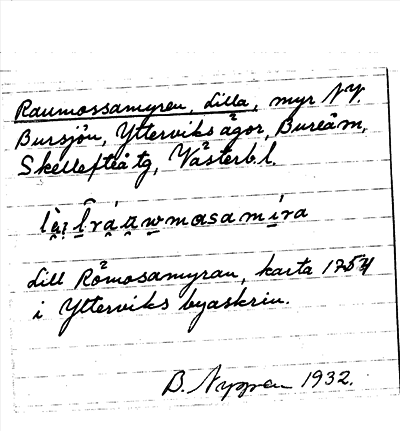 Raumossamyren, Lilla, myr NV.
Bursjön, Ytterviks ägor, Bureåm,
Skellefteå tg, Västerb.l.
mɑsamíra
Lill Råmosamyran, karta 1754
i Ytterviks byaskrin.
B. Nyppen 1932.